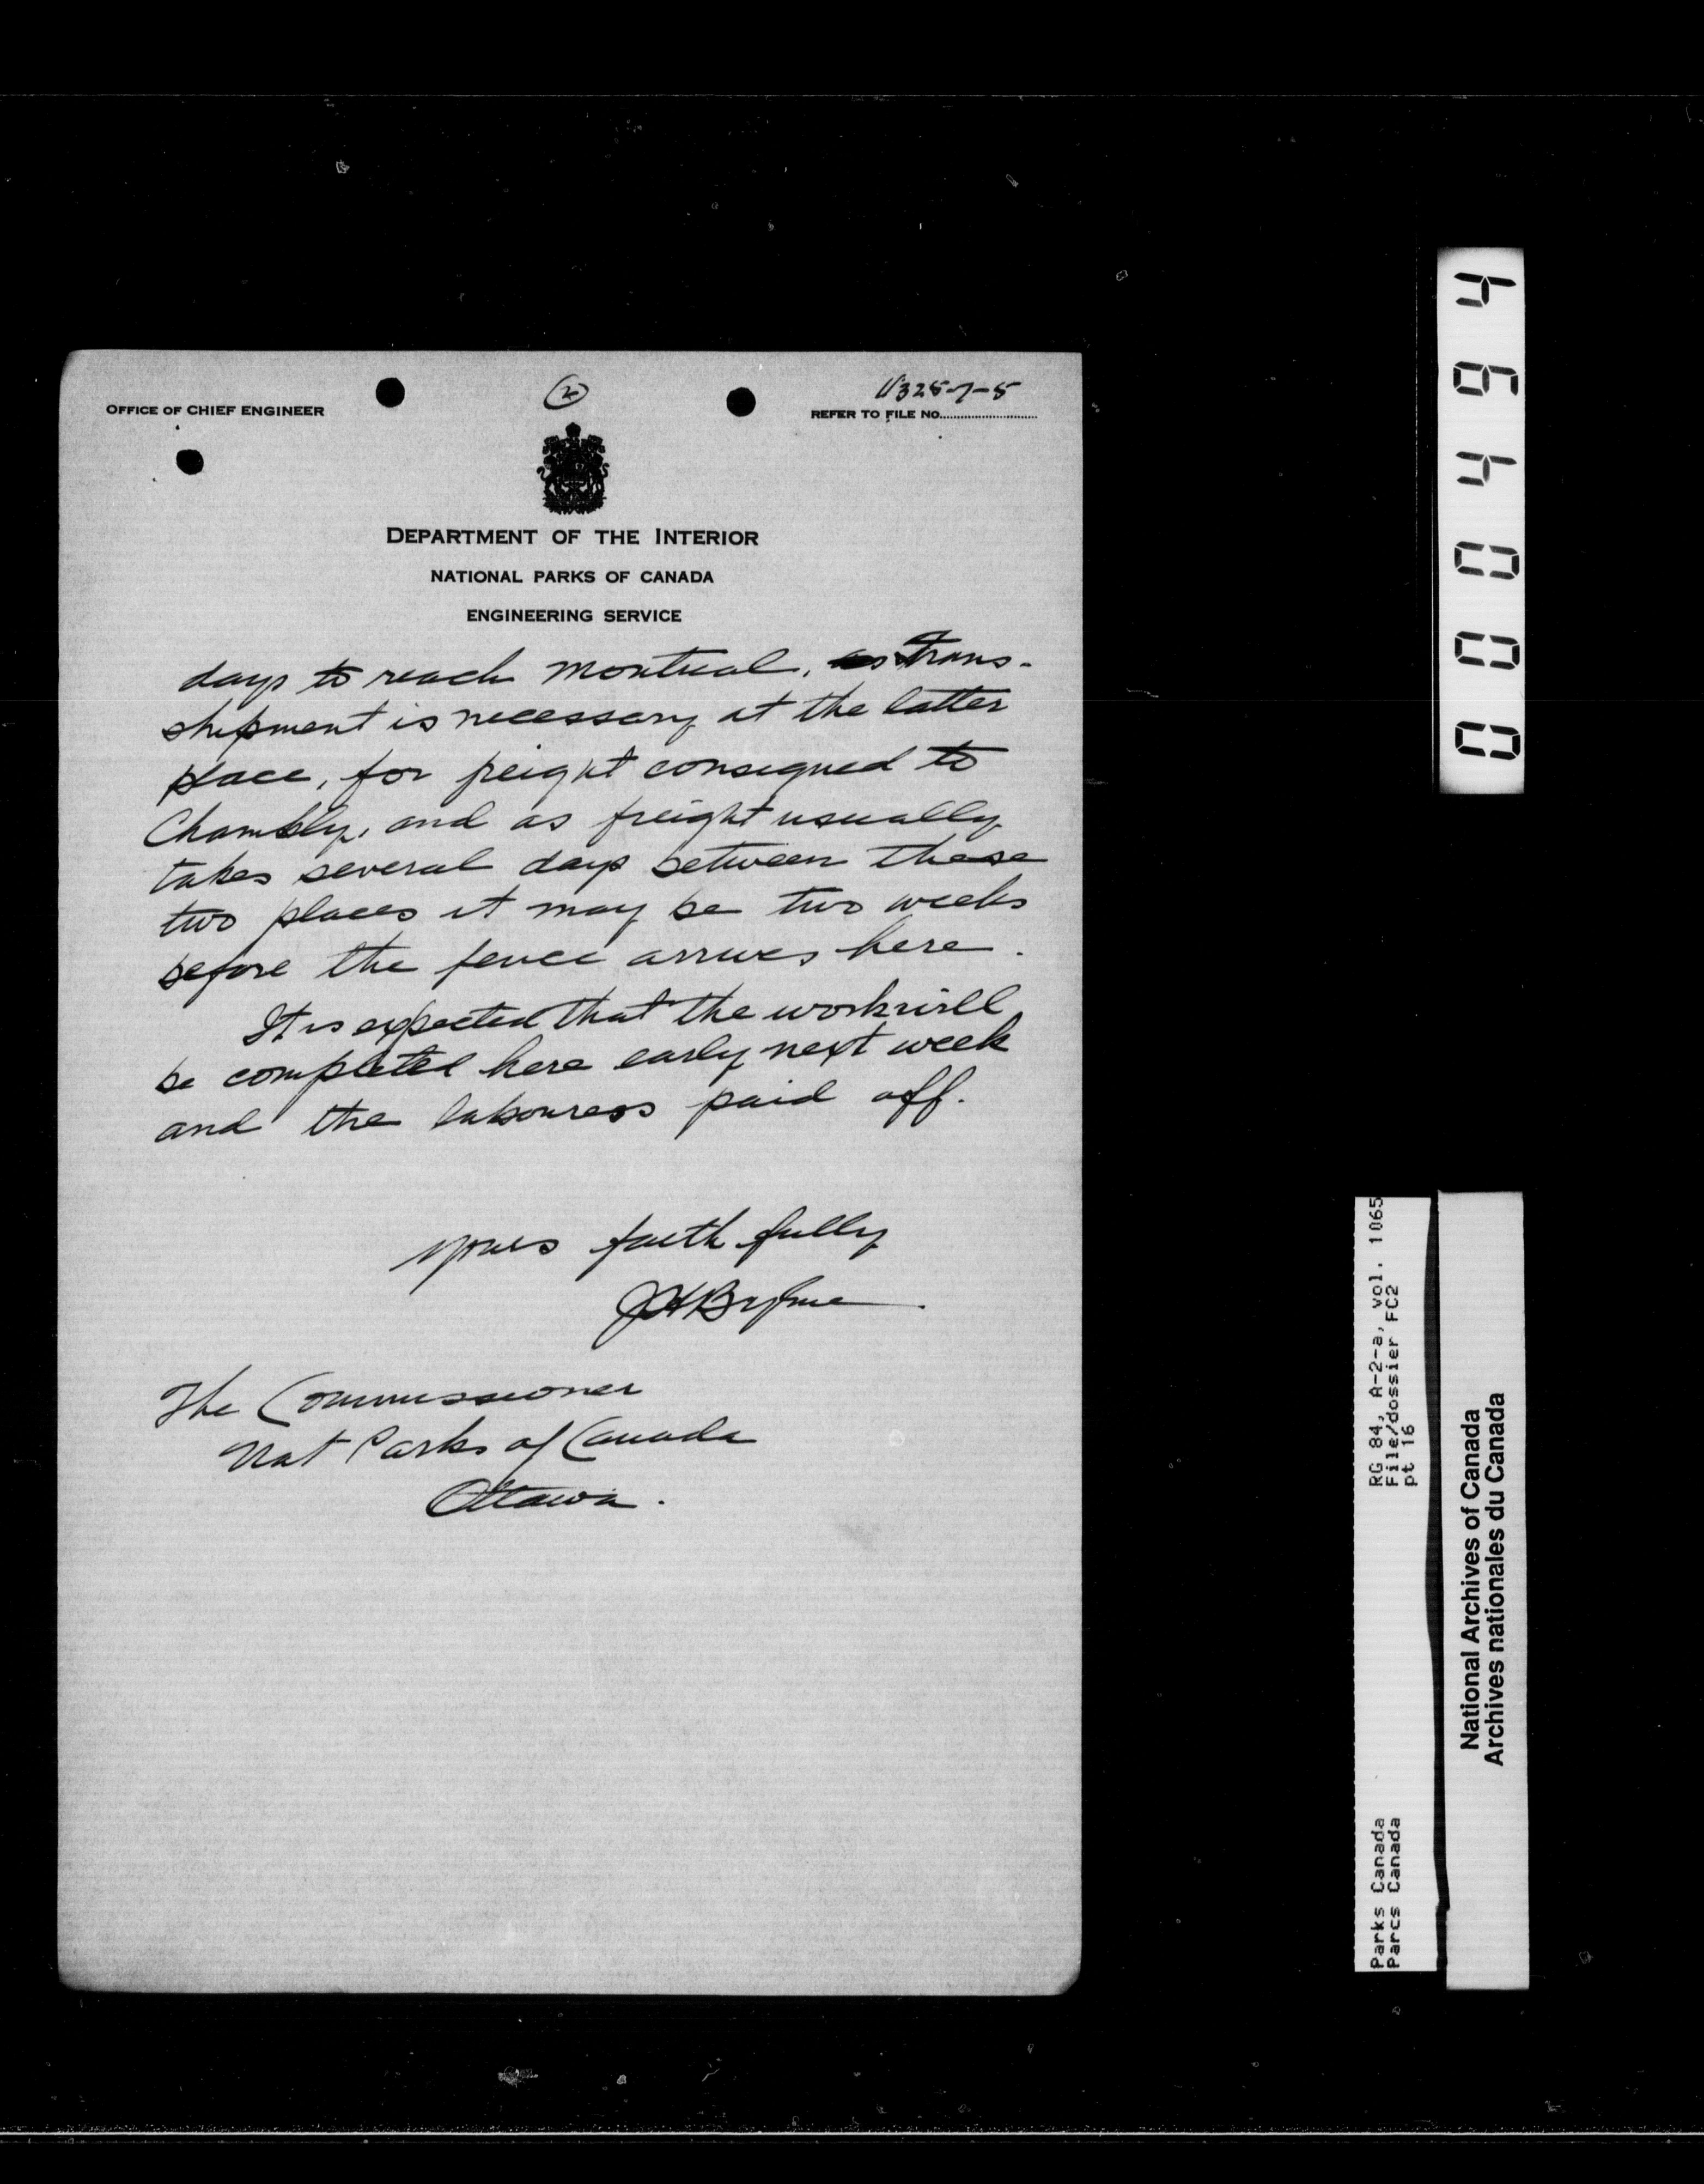 OFFICE OF CHIEF ENGINEER
2
U325-7-5
REFER TO FILE NO.
DEPARTMENT OF THE INTERIOR
NATIONAL PARKS OF CANADA
ENGINEERING SERVICE
days to reach Montreal, as trans-
shipment is necessary at the latter
place, for freight consigned to
Chambly, and as freight usually
takes several days between these
two places it may be two weeks
before the fence arrives here.
It is expected that the work will
be completed here early next week
and the labourers paid off.
Yours faithfully
JHByrne
The Commissioner
Nat Parks of Canada
Ottawa.
000494
RG 84, A-2-a, vol. 1065
File/dossier FC2
pt 16
Parks Canada
Parcs Canada
National Archives of Canada
Archives nationales du Canada